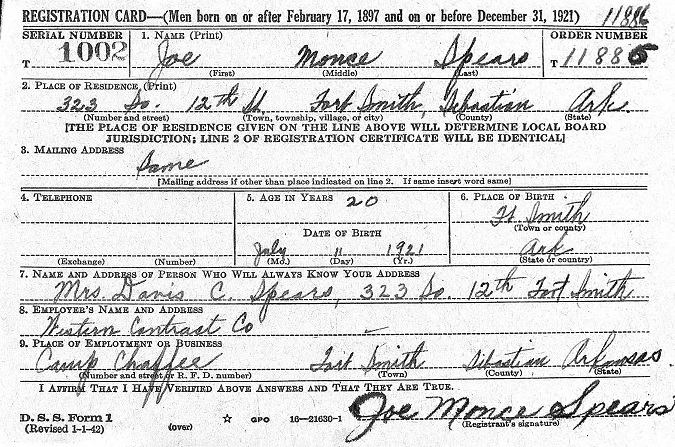 REGISTRATION CARD—(Men born on or after February 17, 1897 and on or before December 31, 1921) 11886
SERIAL NUMBER 1. NAME (Print) ORDER NUMBER
T 1002 Joe Monce Spears T 11885
(First) (Middle) (Last)
2. PLACE OF RESIDENCE (Print)
323 So. 12th St Fort Smith, Sebastian Ark.
(Number and street) (Town, township, village, or city) (County) (State)
[THE PLACE OF RESIDENCE GIVEN ON THE LINE ABOVE WILL DETERMINE LOCAL BOARD
JURISDICTION; LINE 2 OF REGISTRATION CERTIFICATE WILL BE IDENTICAL]
3. MAILING ADDRESS
Same
[Mailing address if other than place indicated on line 2. If same insert word same]
4. TELEPHONE 5. AGE IN YEARS 20 6. PLACE OF BIRTH
Ft Smith
(Town or county)
DATE OF BIRTH
July 11 1921 Ark
(Exchange) (Number) (Mo.) (Day) (Yr.) (State or country)
7. NAME AND ADDRESS OF PERSON WHO WILL ALWAYS KNOW YOUR ADDRESS
Mrs. Davis C. Spears, 323 So. 12th Fort Smith
8. EMPLOYER'S NAME AND ADDRESS
Western Contrast Co
9. PLACE OF EMPLOYMENT OR BUSINESS
Camp Chaffee Fort Smith Sibastian Arkansas
(Number and street or R. F. D. number) (Town) (County) (State)
I AFFIRM THAT I HAVE VERIFIED ABOVE ANSWERS AND THAT THEY ARE TRUE.
D. S. S. Form 1
(Revised 1-1-42) (over) ☆ GPO 16—21630-1 Joe Monce Spears
(Registrant's signature)